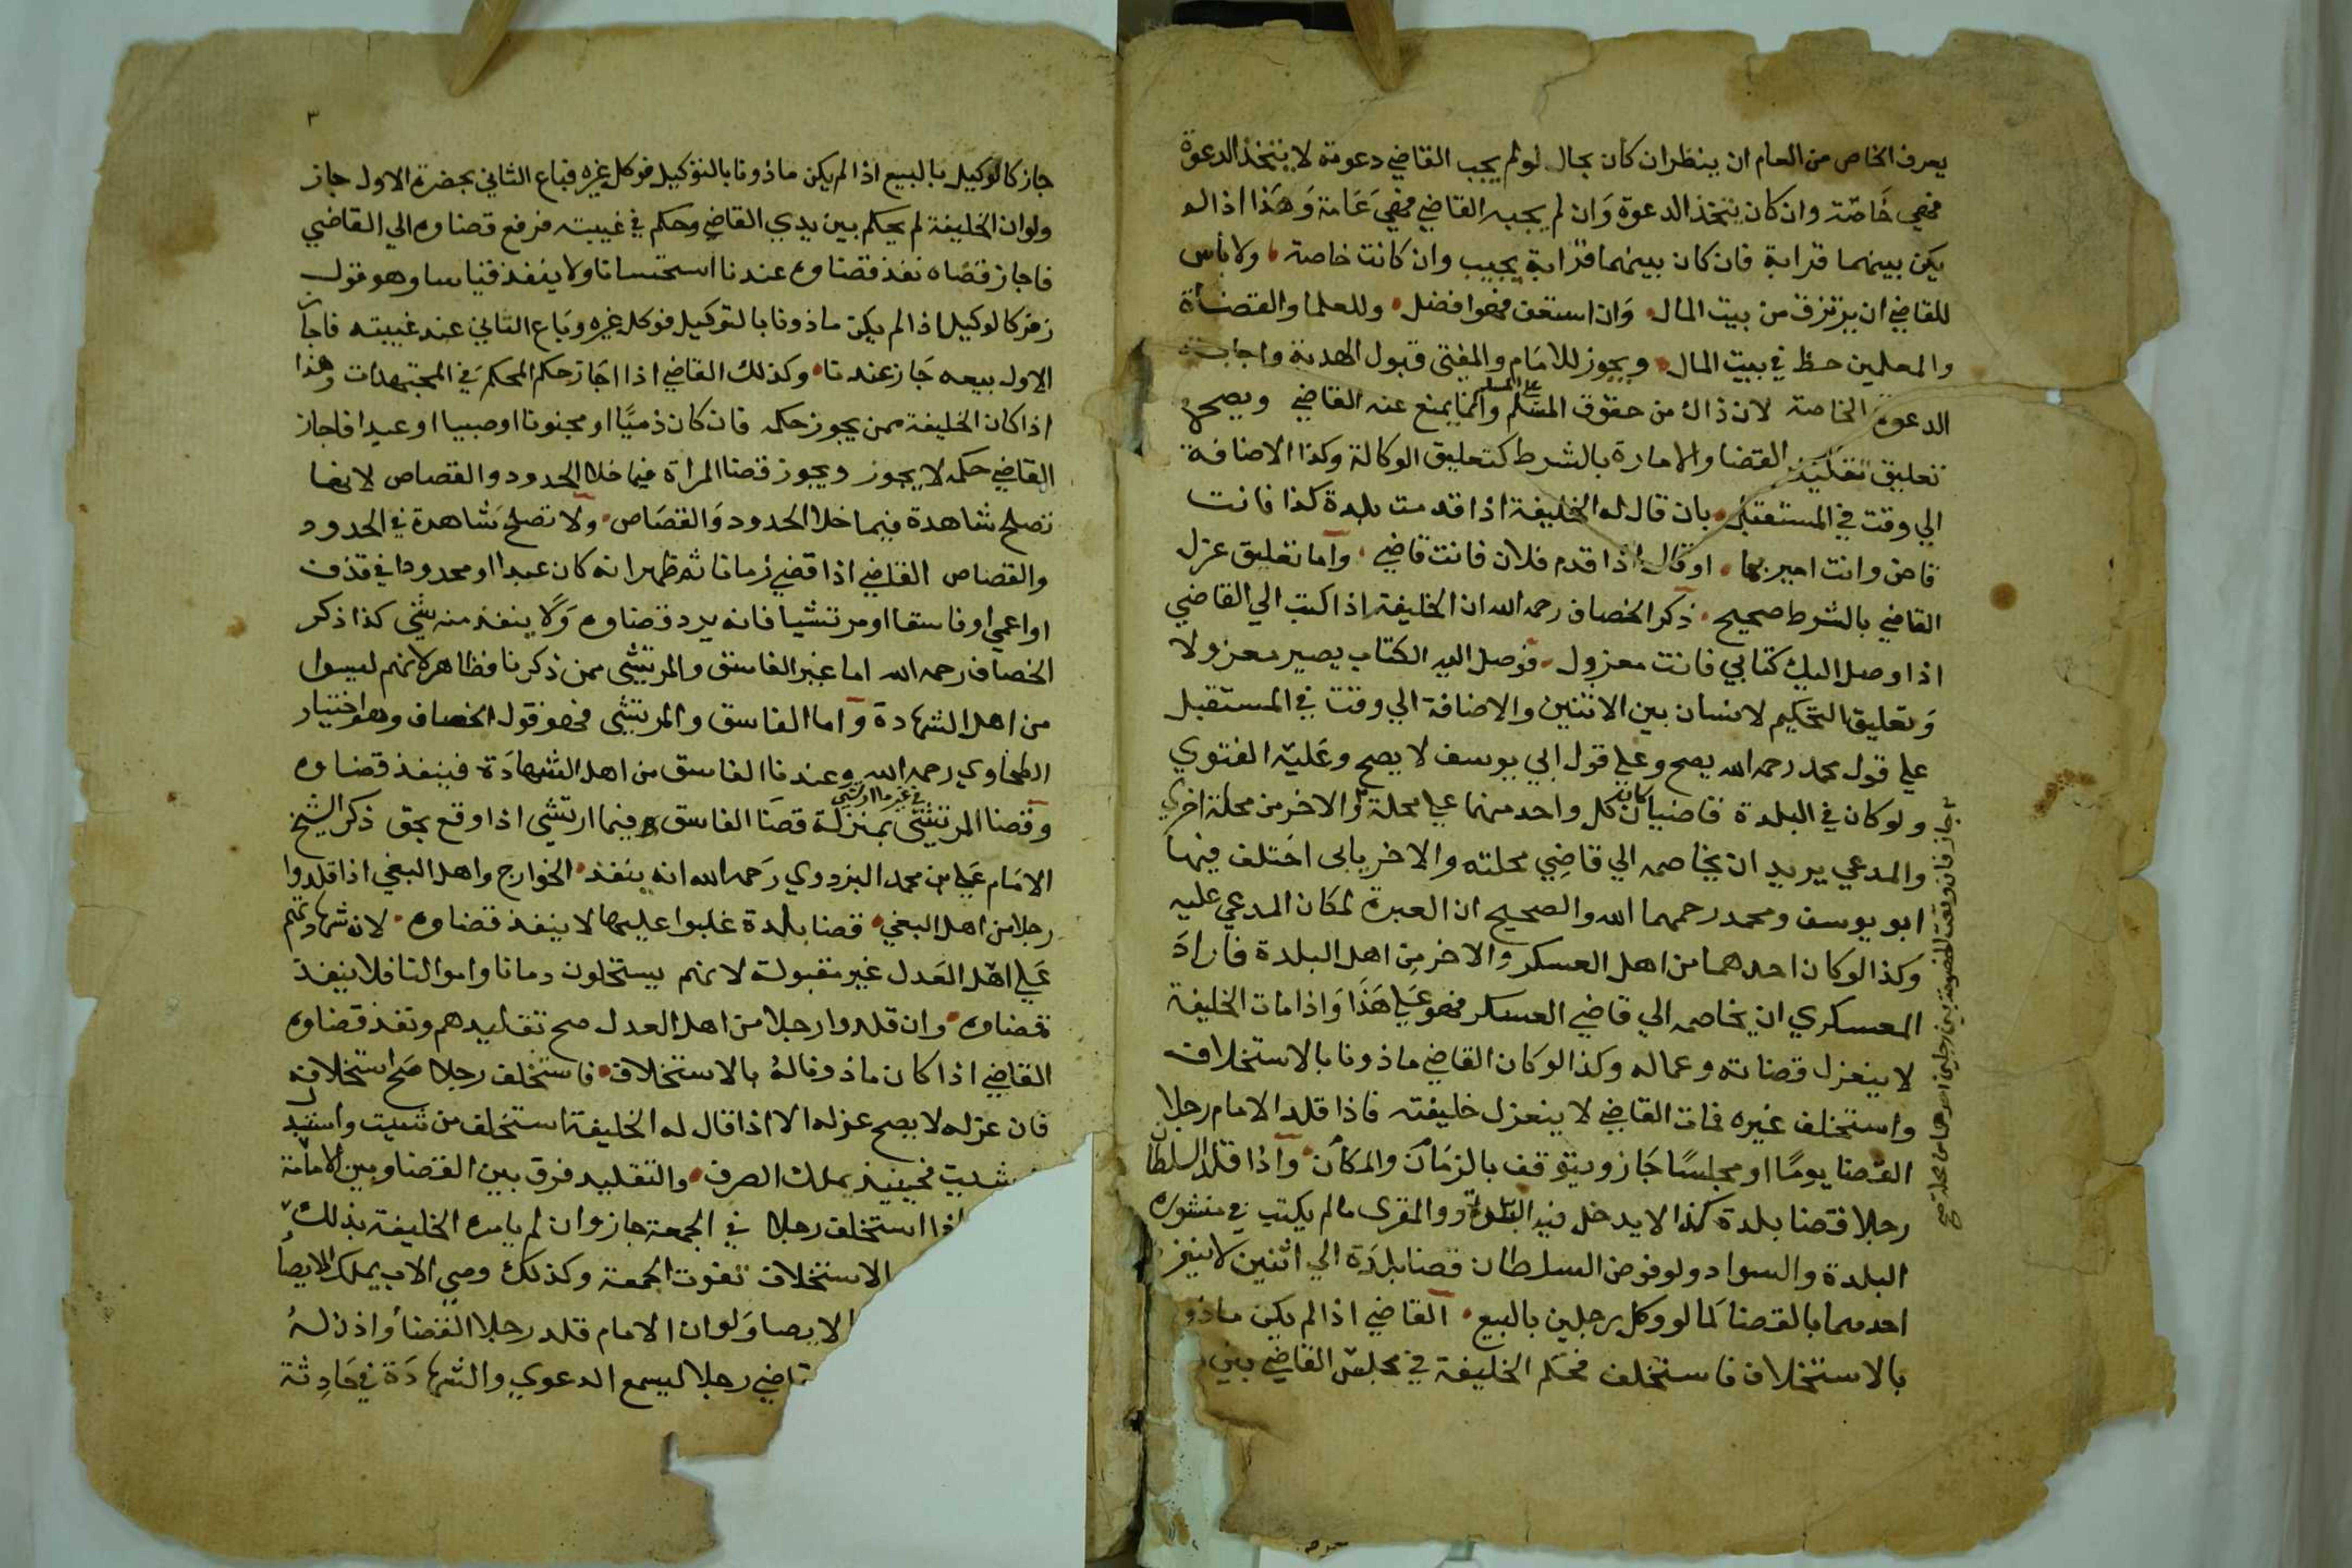 يعرف الخاص من العام ان ينظر ان كان بحال لو لم يجب القاضي دعوته لا يتخذ الدعوة
فهي خاصّة وان كان يتخذ الدعوة وان لم يجبه القاضي فهي عامة وهذا اذا لم
يكن بينهما قرابة فان كان بينهما قرابة يجيب وان كانت خاصة ولا باس
للقاضي ان يرتزق من بيت المال وان استعف فهو افضل وللعلما والقضاة
والمعلمين حظ في بيت المال ويجوز للامام والمفتى قبول الهدية واجابة
الدعوة الخاصة لان ذاك من حقوق المسلم على المسلم وانما يمنع عنه القاضي ويصح
تعليق تقليد القضا والامارة بالشرط كتعليق الوكالة وكذا الاضافة
الي وقت في المستقبل بان قال له الخليفة اذا قدمت بلدة كذا فانت
قاض وانت امير بها او قال اذا قدم فلان فانت قاضي واما تعليق عزل
القاضي بالشرط صحيح ذكر الخصاف رحمه الله ان الخليفة اذا كتب الي القاضي
اذا وصل اليك كتابي فانت معزول فوصل اليه الكتاب يصير معزولا
وتعليق التحكيم لانسان بين الاثنين والاضافة الي وقت في المستقبل
علي قول محمد رحمه الله يصح وعلي قول ابي يوسف لا يصح وعليه الفتوي
ولو كان في البلدة قاضيان كان كل واحد منهما علي محلة والاخر من محلة اخري
والمدعي يريد ان يخاصمه الي قاضي محلته والاخر يابى اختلف فيها
ابو يوسف ومحمد رحمهما الله والصحيح ان العبرة لمكان المدعي عليه
وكذا لو كان احدهما من اهل العسكر والاخر من اهل البلدة فاراد
العسكري ان يخاصمه الي قاضي العسكر فهو علي هذا واذا مات الخليفة
لا ينعزل قضاته وعماله وكذا لو كان القاضي ماذونا بالاستخلاف
واستخلف غيره فمات القاضي لا ينعزل خليفته فاذا قلد الامام رجلا
القضا يومًا او مجلسًا جاز ويتوقف بالزمان والمكان واذا قلد السلطان
رجلا قضا بلدة كذا لا يدخل فيه والقرى مالم يكتب في منشوره
البلدة والسواد ولو فوض السلطان قضا بلدة الي اثنين لا ينفرد
احدهما بالقضا كما لو وكل رجلين بالبيع القاضي اذا لم يكن ماذو
بالاستخلاف فاستخلف فحكم الخليفة في مجلس القاضي بين
جاز فان وقعت الخصومة بين رجلين احدهما من محلة صح
٣
جاز كالوكيل بالبيع اذا لم يكن ماذونا بالتوكيل فوكل غيره فباع الثاني بحضرة الاول جاز
ولو ان الخليفة لم يحكم بين يدي القاضي وحكم في غيبته فرفع قضاوه الي القاضي
فاجاز قضاه نفذ قضاوه عندنا استحسانا ولا ينفذ قياسا وهو قول
زفر كالوكيل اذا لم يكن ماذونا بالتوكيل فوكل غيره وباع الثاني عند غيبته فاجاز
الاول بيعه جاز عندنا وكذلك القاضي اذا اجاز حكم المحكم في المجتهدات وهذا
اذا كان الخليفة ممن يجوز حكمه فان كان ذميًّا او مجنونا او صبيا او عبدا فاجاز
القاضي حكمه لا يجوز ويجوز قضا المراة فيما خلا الحدود والقصاص لانها
تصلح شاهدة فيما خلا الحدود والقصاص ولا تصلح شاهدة في الحدود
والقصاص القاضي اذا قضي زمانا ثم ظهر انه كان عبدا او محدودا في قذف
او اعمي او فاسقا او مرتشيا فانه يرد قضاوه ولا ينفذ منه شي كذا ذكر
الخصاف رحمه الله اما غير الفاسق والمرتشي ممن ذكرنا فظاهر لانهم ليسوا
من اهل الشهادة واما الفاسق والمرتشي فهو قول الخصاف وهو اختيار
الطحاوي رحمه الله وعندنا الفاسق من اهل الشهادة فينفذ قضاوه
وقضا المرتشي في غير ما ارتشي بمنزلة قضا الفاسق وفيما ارتشي اذا وقع بحق ذكر الشيخ
الامام علي بن محمد البزدوي رحمه الله انه ينفذ الخوارج واهل البغي اذا قلدوا
رجلا من اهل البغي قضا بلدة غلبوا عليها لا ينفذ قضاوه لان شهادتهم
علي اهل العدل غير مقبولة لانهم يستحلون دمانا واموالنا فلا ينفذ
قضاوه وان قلدوا رجلا من اهل العدل صح تقليدهم ونفذ قضاوه
القاضي اذا كان ماذونا له بالاستخلاف فاستخلف رجلا صح استخلافه
فان عزله لا يصح عزله الا اذا قال له الخليفة استخلف من شيت واستبدل
شيت فحينيذ يملك الصرف والتقليد فرق بين القضا وبين الامامة
اذا استخلف رجلا في الجمعة جاز وان لم يامره الخليفة بذلك
الاستخلاف تفوت الجمعة وكذلك وصي الاب يملك الايصا
الايصا ولو ان الامام قلد رجلا القضا واذن له
قاضي رجلا ليسمع الدعوي والشهادة في حادثة